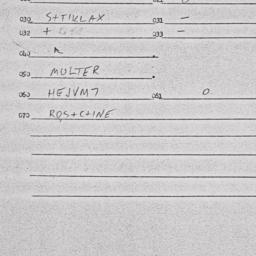 030 S+TIKLAX 031 -
032 + 033 -
040
050 MULTER
060 HEJVM7 061 0
070 ROS+C+INE